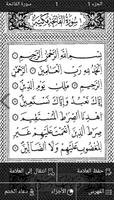 الجزء 1
1
سورة الفاتحة
بِسْمِ اللَّهِ الرَّحْمَٰنِ الرَّحِيمِ
الْحَمْدُ لِلَّهِ رَبِّ الْعَالَمِينَ
الرَّحْمَٰنِ الرَّحِيمِ مَالِكِ يَوْمِ الدِّينِ
إِيَّاكَ نَعْبُدُ وَإِيَّاكَ نَسْتَعِينُ
اهْدِنَا الصِّرَاطَ الْمُسْتَقِيمَ صِرَاطَ
الَّذِينَ أَنْعَمْتَ عَلَيْهِمْ غَيْرِ
الْمَغْضُوبِ عَلَيْهِمْ وَلَا الضَّالِّينَ
حفظ العلامة انتقال إلى العلامة
الفهرس الأجزاء دعاء الختم